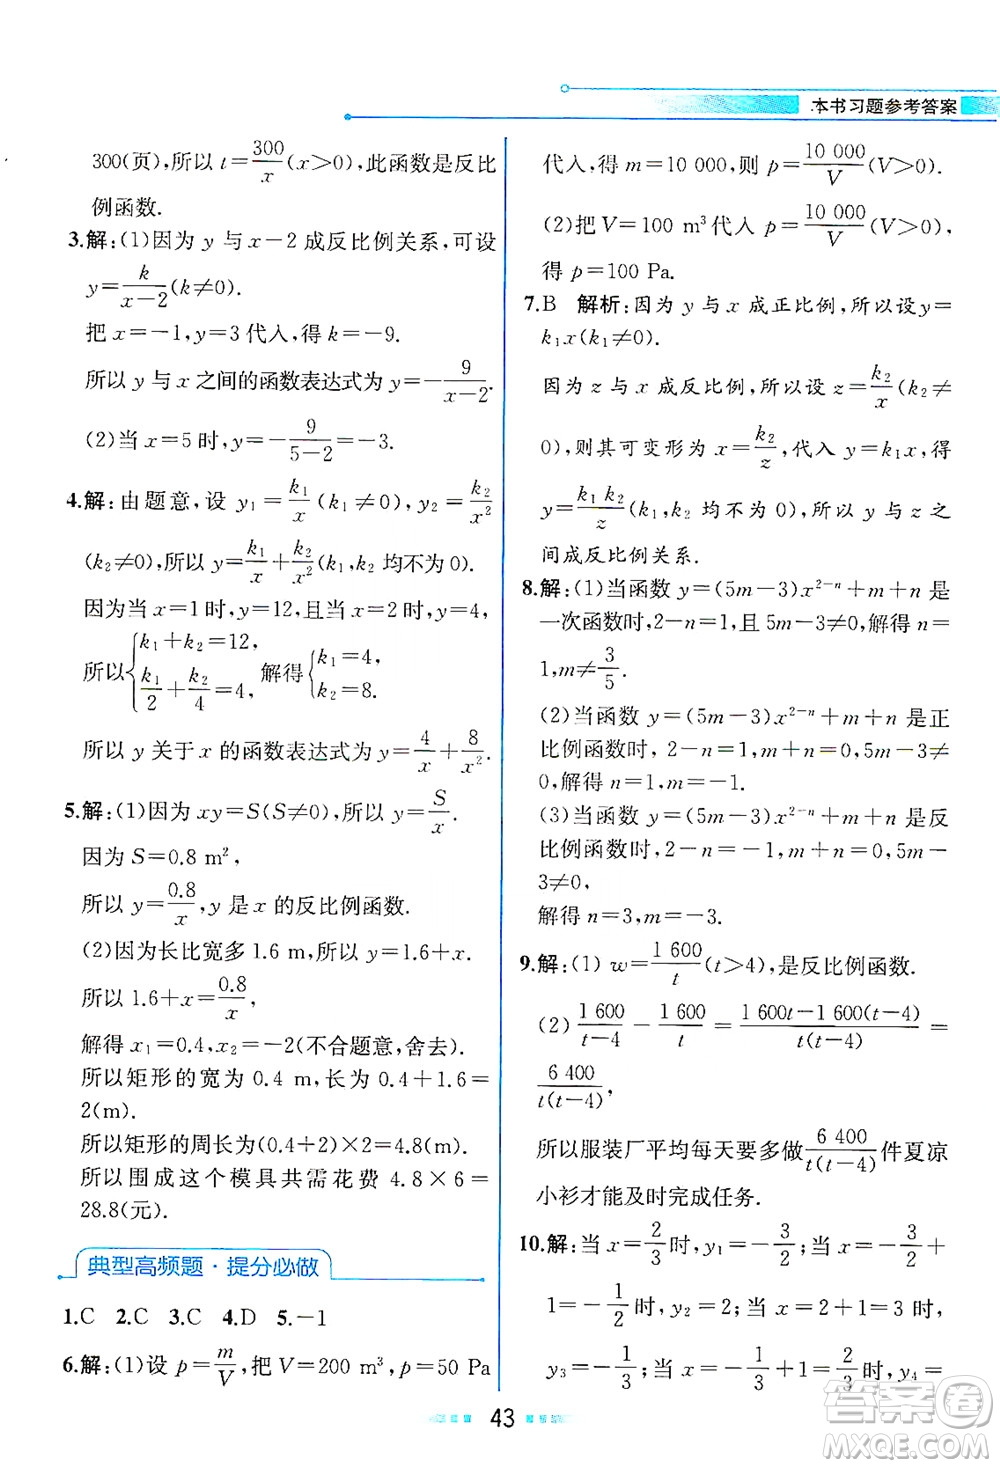 本书习题参考答案
300(页),所以 t=300/x(x>0),此函数是反比
例函数.
3.解:(1)因为 y 与 x-2 成反比例关系,可设
y=k/(x-2)(k≠0).
把 x=-1,y=3 代入,得 k=-9.
所以 y 与 x 之间的函数表达式为 y=-9/(x-2).
(2)当 x=5 时,y=-9/(5-2)=-3.
4.解:由题意,设 y₁=k₁/x(k₁≠0),y₂=k₂/x²
(k₂≠0),所以 y=k₁/x+k₂/x²(k₁,k₂ 均不为 0).
因为当 x=1 时,y=12,且当 x=2 时,y=4,
所以{k₁+k₂=12, k₁/2+k₂/4=4, 解得{k₁=4, k₂=8.
所以 y 关于 x 的函数表达式为 y=4/x+8/x².
5.解:(1)因为 xy=S(S≠0),所以 y=S/x.
因为 S=0.8 m²,
所以 y=0.8/x,y 是 x 的反比例函数.
(2)因为长比宽多 1.6 m,所以 y=1.6+x.
所以 1.6+x=0.8/x,
解得 x₁=0.4,x₂=-2(不合题意,舍去).
所以矩形的宽为 0.4 m,长为 0.4+1.6=
2(m).
所以矩形的周长为(0.4+2)×2=4.8(m).
所以围成这个模具共需花费 4.8×6=
28.8(元).
典型高频题·提分必做
1.C 2.C 3.C 4.D 5.-1
6.解:(1)设 p=m/V,把 V=200 m³,p=50 Pa
代入,得 m=10 000,则 p=10 000/V(V>0).
(2)把 V=100 m³代入 p=10 000/V(V>0),
得 p=100 Pa.
7.B 解析:因为 y 与 x 成正比例,所以设y=
k₁x(k₁≠0).
因为 z 与 x 成反比例,所以设 z=k₂/x(k₂≠
0),则其可变形为 x=k₂/z,代入 y=k₁x,得
y=k₁k₂/z(k₁,k₂ 均不为 0),所以 y 与 z 之
间成反比例关系.
8.解:(1)当函数 y=(5m-3)x²⁻ⁿ+m+n 是
一次函数时,2-n=1,且 5m-3≠0,解得 n=
1,m≠3/5.
(2)当函数 y=(5m-3)x²⁻ⁿ+m+n 是正
比例函数时,2-n=1,m+n=0,5m-3≠0,
解得 n=1,m=-1.
(3)当函数 y=(5m-3)x²⁻ⁿ+m+n 是反
比例函数时,2-n=-1,m+n=0,5m-
3≠0,
解得 n=3,m=-3.
9.解:(1) w=1 600/t(t>4),是反比例函数.
(2) 1 600/(t-4)-1 600/t=(1 600t-1 600(t-4))/(t(t-4))=
6 400/(t(t-4)),
所以服装厂平均每天要多做6 400/(t(t-4))件夏凉
小衫才能及时完成任务.
10.解:当 x=2/3时,y₁=-3/2;当 x=-3/2+
1=-1/2时,y₂=2;当 x=2+1=3 时,
y₃=-1/3;当 x=-1/3+1=2/3时,y₄=
43
答案圈
MXQE.COM